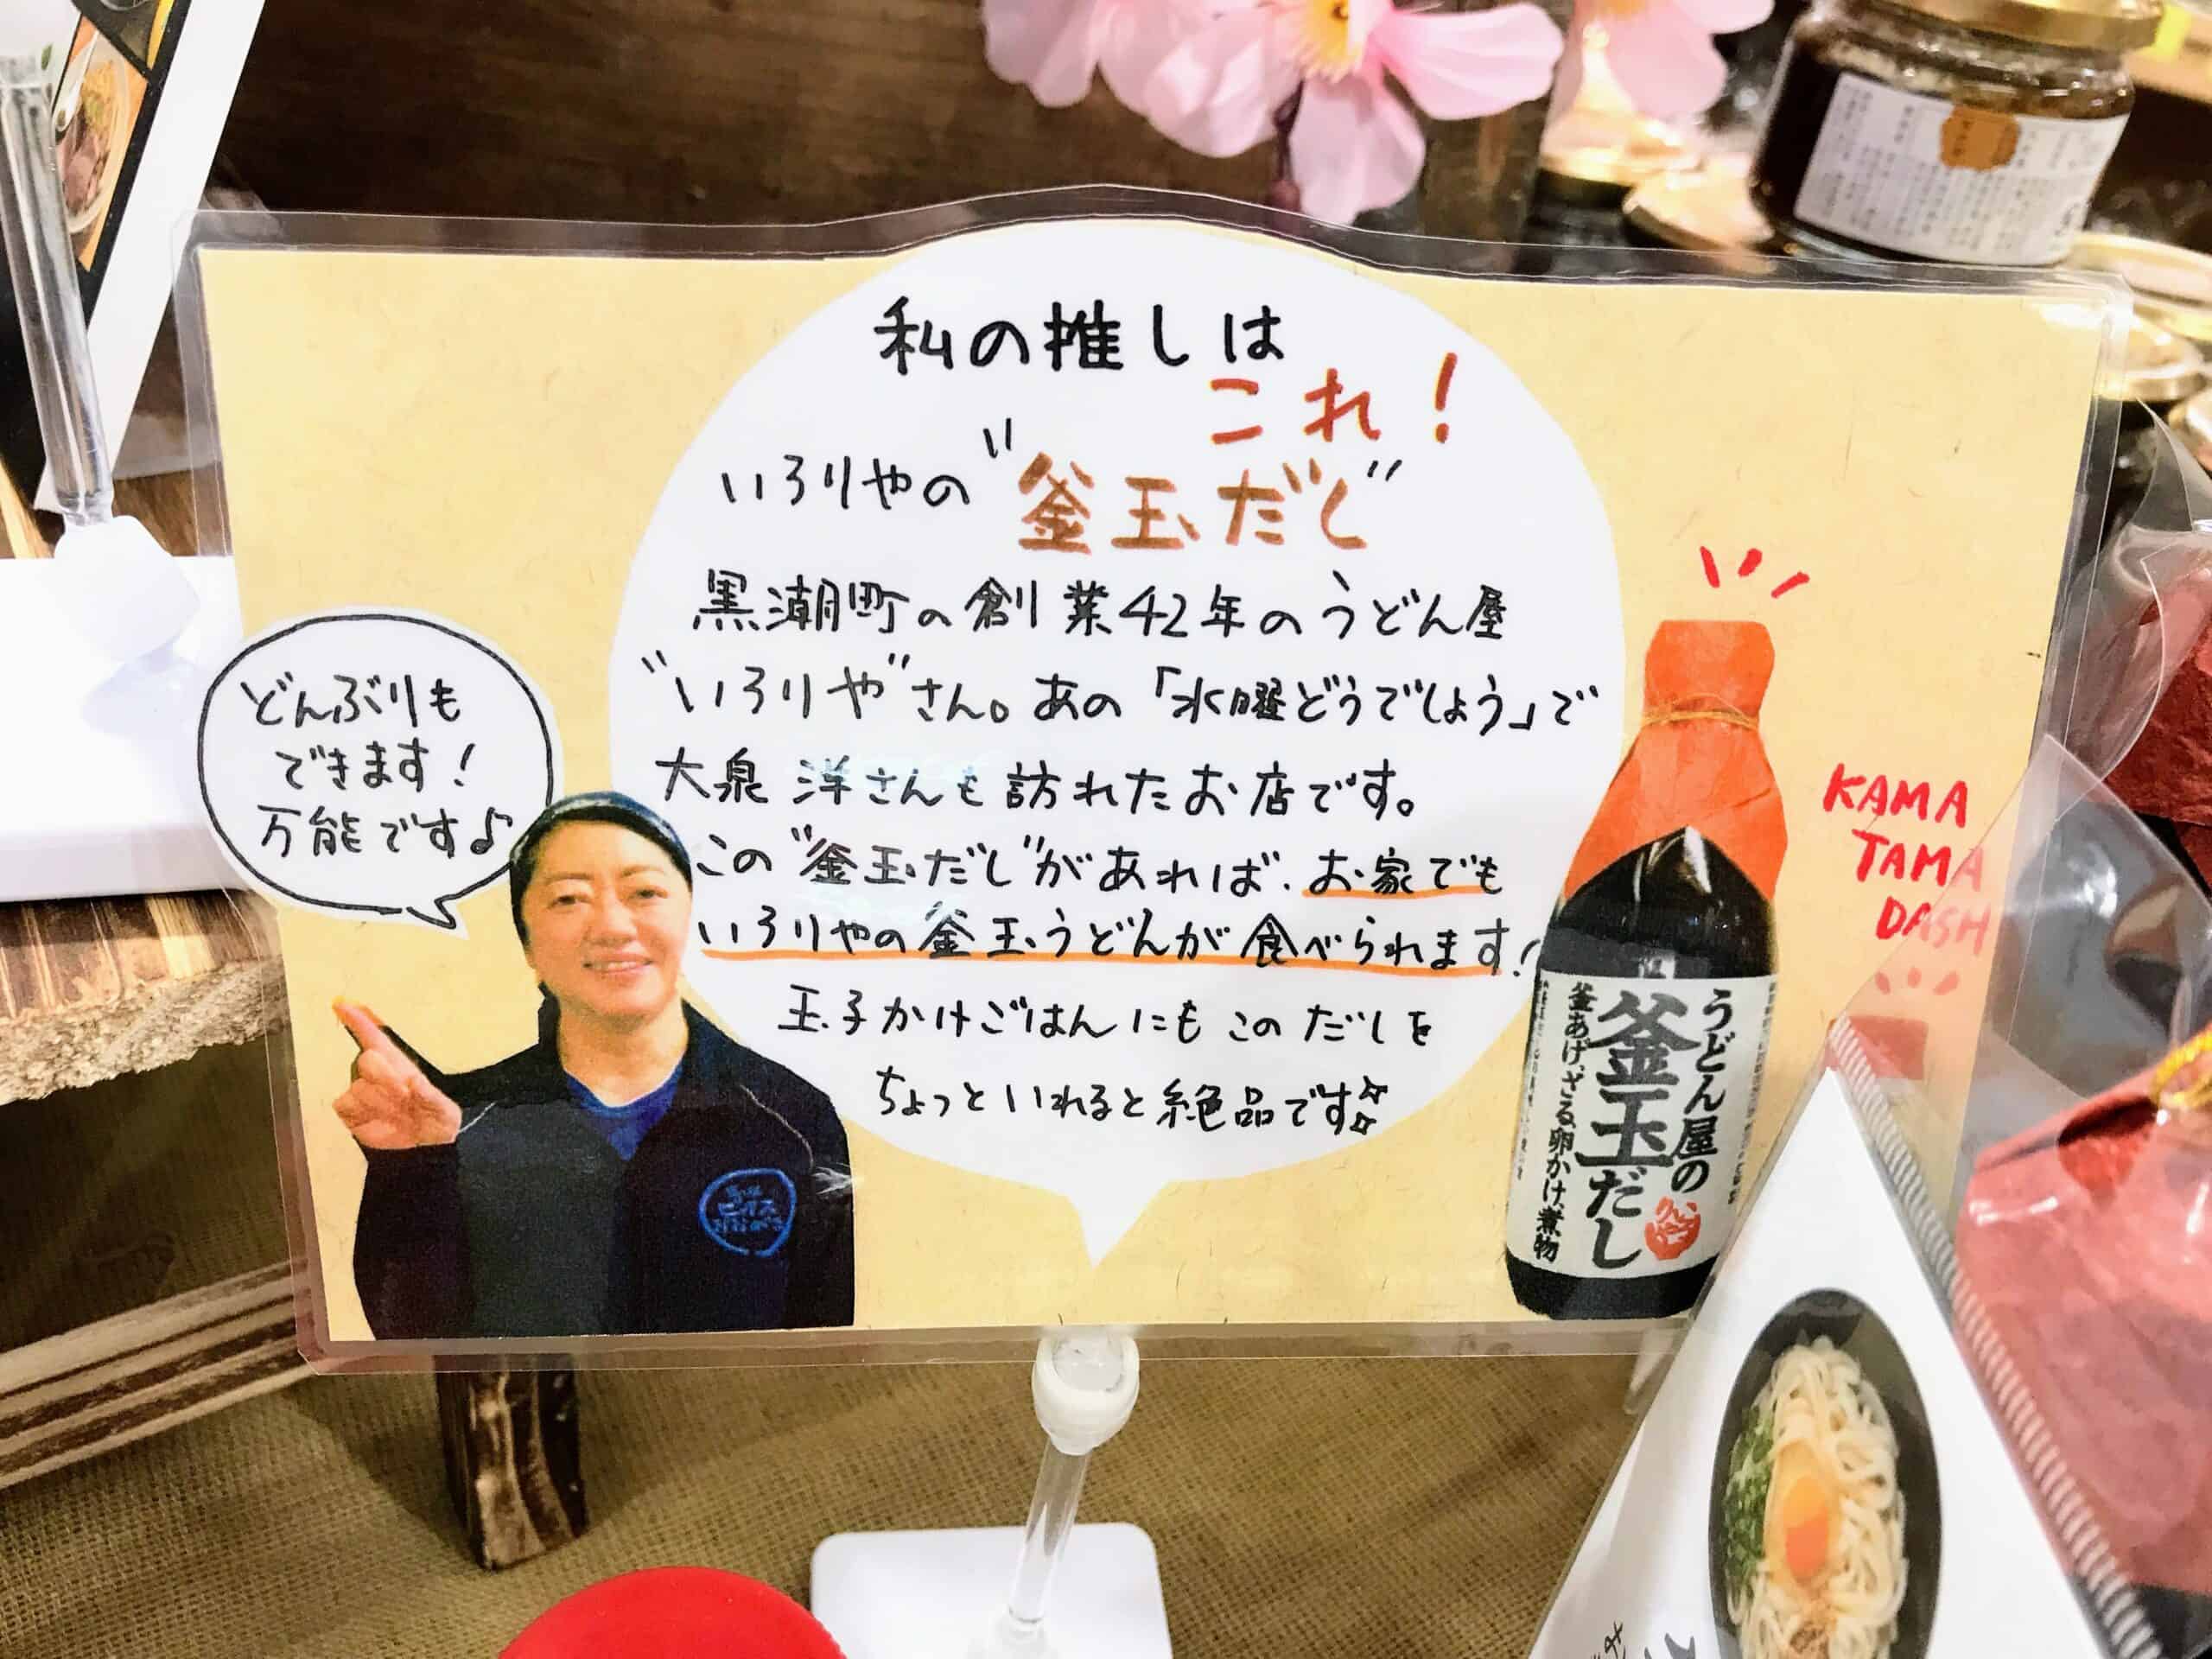 私の推しは
これ!
いろりやの"釜玉だし"
黒潮町の創業42年のうどん屋
"いろりや"さん。あの「水曜どうでしょう」で
大泉 洋さんも訪れたお店です。
この"釜玉だし"があれば、お家でも
いろりやの釜玉うどんが食べられます!
玉子かけごはんにもこのだしを
ちょっといれると絶品です♪
どんぶりも
できます!
万能です♪
KAMA
TAMA
DASH
うどん屋の
釜玉だし
釜あげ、ざる、卵かけ、煮物